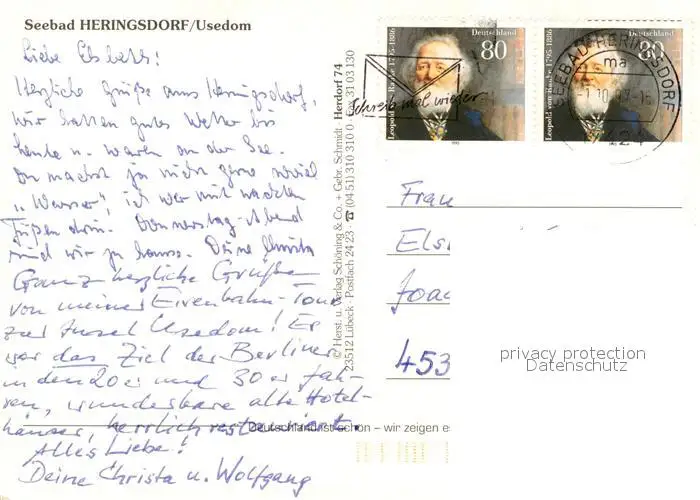 Seebad HERINGSDORF/Usedom
Liebe Elsbeth!
Herzliche Grüße aus Heringsdorf,
wir hatten gutes Wetter bis
heute u. waren an der See.
Du machst ja nicht gerne soviel
„Wasser", ich war mit nackten
Füßen drin. Donnerstag-Abend
sind wir zu hause. Deine Christa
Ganz herzliche Grüße
von meiner Eisenbahn-Tour
zur Insel Usedom! Es
war das Ziel der Berliner
in den 20er und 30er Jah-
ren, wunderbare alte Hotel-
häuser, herrlich restauriert.
Alles Liebe!
Deine Christa u. Wolfgang
© Herst. u. Verlag Schöning & Co. + Gebr. Schmidt · Herdorf 74
23512 Lübeck - Postfach 24 23 · ☎ (04 51) 310 310 31 03 130
Deutschland ist schön – wir zeigen es
Deutschland
80
Leopold von Ranke 1795-1886
Deutschland
80
Leopold von Ranke 1795-1886
Schreib mal wieder
SEEBAD HERINGSDORF
ma
Frau
Els
Joac
453
privacy protection
Datenschutz